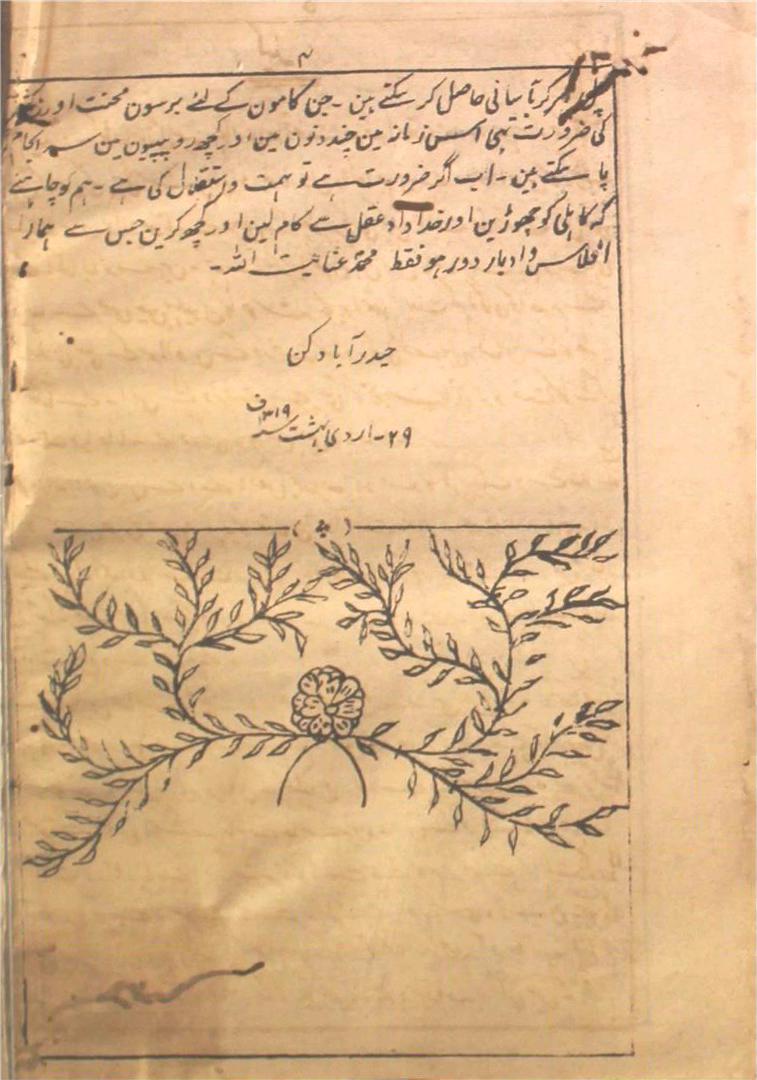 ۴
کر بآسانی حاصل کر سکتے ہین ۔ جن کامون کے لئے برسون محنت اور
کی ضرورت تہی اسس زمانہ مین چند دنون مین اور کچھ روپیون مین سر انجام
پا سکتے ہین ۔ اب اگر ضرورت ہے تو ہمت و استقلال کی ہے ۔ ہم کو چاہئے
کہ کاہلی کو چھوڑین اور خداداد عقل سے کام لین اور کچھ کرین جس سے ہمارا
افلاس و ادبار دور ہو فقط محمد عنایت اللہ ۔
حیدرآباد دکن
۲۹ ۔ اردی بہشت سنہ ۱۳۱۹ ف